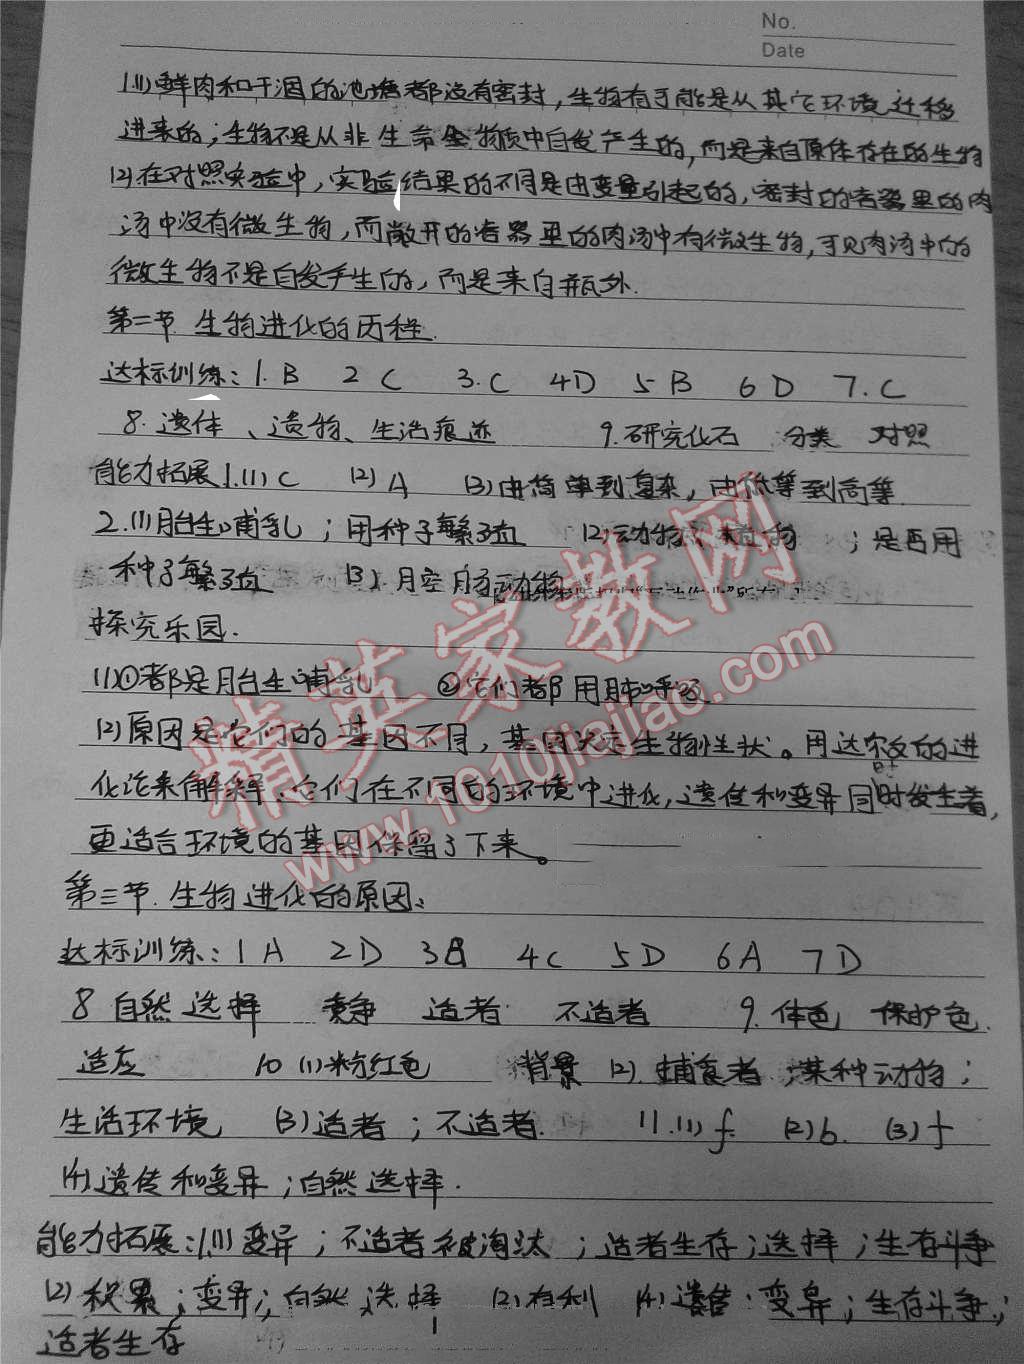 No.
Date
1.(1)鲜肉和干涸的池塘都没有密封，生物有可能是从其它环境迁移
进来的；生物不是从非生命物质中自发产生的，而是来自原体存在的生物
(2)在对照实验中，实验结果的不同是由变量引起的，密封的容器里的肉
汤中没有微生物，而敞开的容器里的肉汤中有微生物，可见肉汤中的
微生物不是自发产生的，而是来自瓶外.
第二节. 生物进化的历程.
达标训练：1.B 2 C 3.C 4D 5 B 6 D 7.C
8. 遗体、遗物、生活痕迹 9.研究化石 分类 对照
能力拓展1.(1) C (2) A (3)由简单到复杂，由低等到高等.
2.(1)胎生哺乳；用种子繁殖 (2)动物；植物；是否用
种子繁殖 (3)
探究乐园.
(1)①都是胎生哺乳 ②它们都用肺呼吸
(2)原因是它们的基因不同，基因决定生物性状。用达尔文的进
化论来解释，它们在不同的环境中进化，遗传和变异同时发生着，
更适合环境的基因保留了下来。
第三节. 生物进化的原因.
达标训练：1 A 2D 3B 4C 5D 6A 7D
8 自然选择 竞争 适者 不适者 9. 体色 保护色
适应 10 (1)粉红色 背景 (2). 捕食者；某种动物；
生活环境 (3)适者；不适者. 11.(1) f. (2)b. (3) f
(4)遗传和变异；自然选择.
能力拓展：1.(1)变异；不适者被淘汰；适者生存；选择；生存斗争
(2)积累；变异；自然选择 (3)有利 (4)遗传；变异；生存斗争；
适者生存
精英家教网
www.1010jiajiao.com